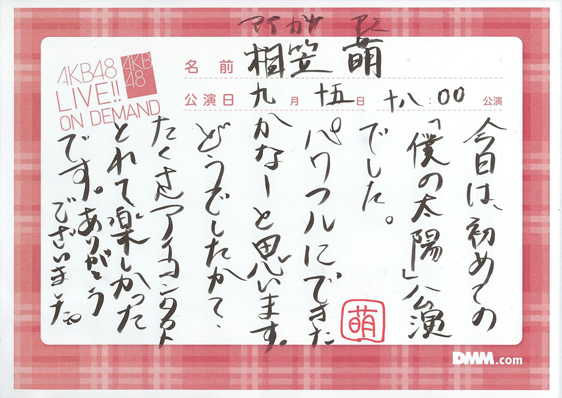 アイガサ モエ
AKB48
LIVE!!
ON DEMAND
AKB
48
名前 相笠 萌
公演日 九月十五日 十八:00 公演
今日は、初めての
「僕の太陽」公演
でした。
パワフルにできた
かなーと思います。
どうでしたかて、
たくさんアイコンタクト
とれて楽しかった
です。ありがとう
ございました。
萌
DMM.com